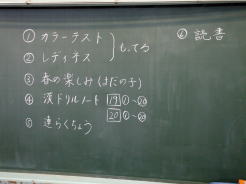 ① カラーテスト
② レディネス
もってる
③ 春の楽しみ(はだの子)
④ 漢ドリルノート 19 ①~⑳
20 ①~⑳
⑤ 連らくちょう
⑥ 読書